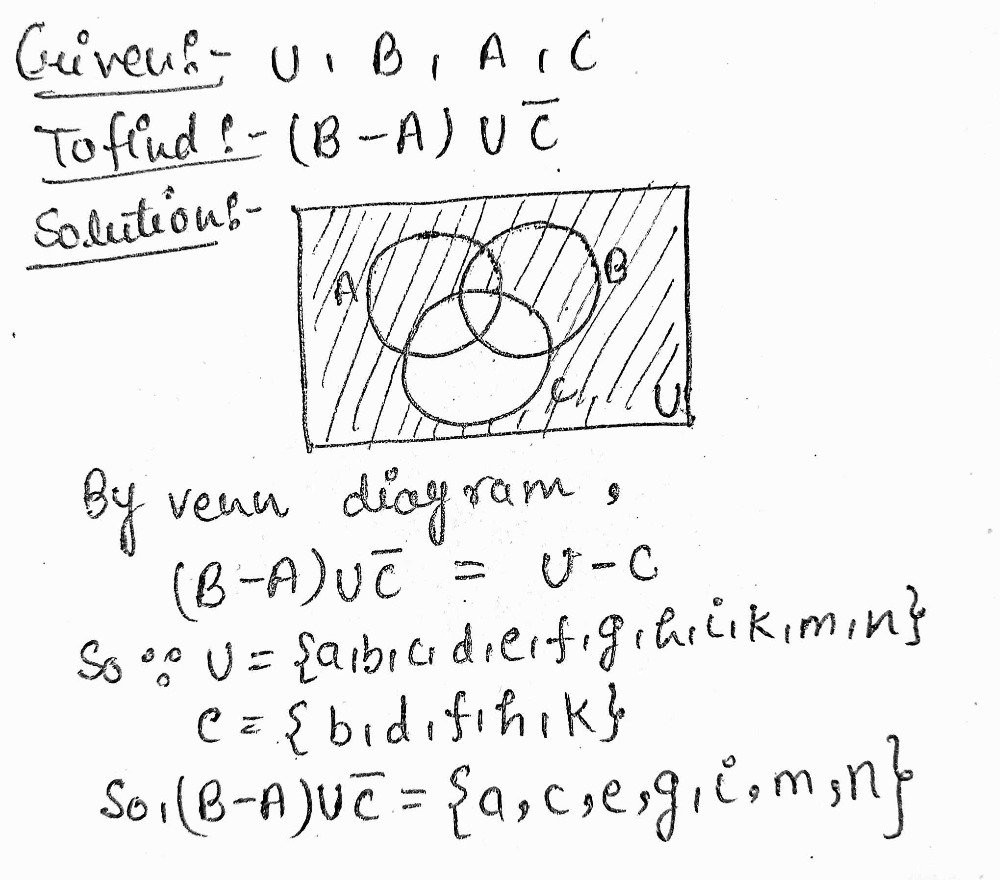 Given:- U, B, A, C
To find :- (B-A) U C̅
Solution:-
A
B
C
U
By venn diagram,
(B-A) U C̅ = U-C
So ∵ U = {a,b,c,d,e,f,g,h,i,k,m,n}
C = {b,d,f,h,k}
So,(B-A)UC̅ = {a,c,e,g,i,m,n}